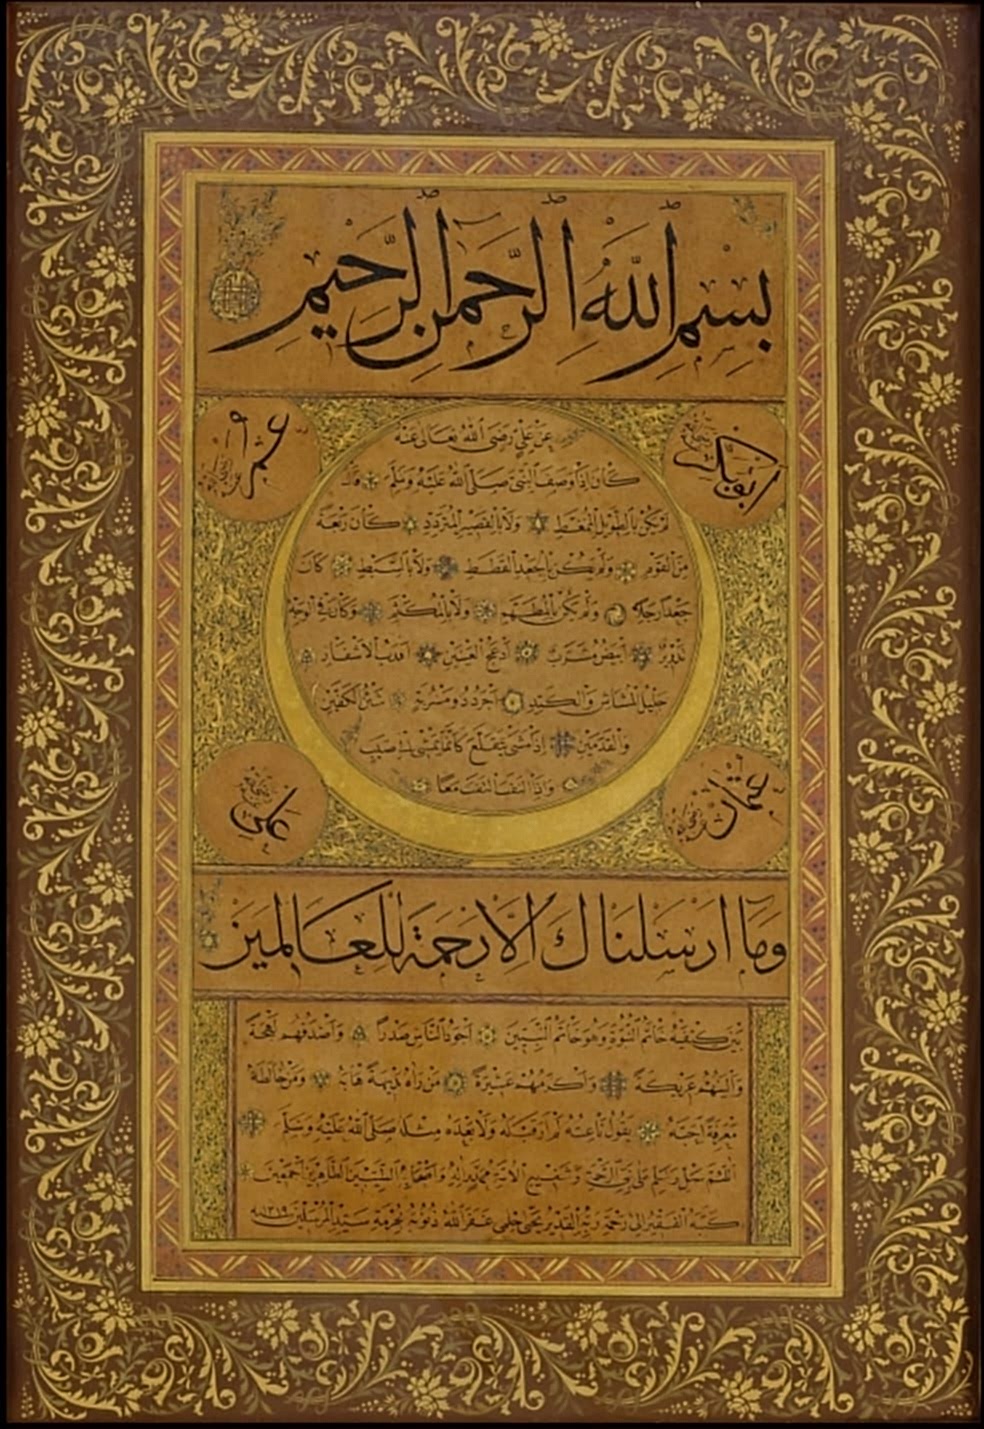 بِسْمِ اللَّهِ الرَّحْمنِ الرَّحِيمِ
ابوبكر
عمر
عن علي رضى الله تعالى عنه
كان اذا وصف النبى صلى الله عليه وسلم قال
لم يكن بالطويل الممغط ولا بالقصير المتردد كان ربعة
من القوم ولم يكن بالجعد القطط ولا بالسبط كان
جعدا رجلا ولم يكن بالمطهم ولا بالمكلثم وكان فى الوجه
تدوير ابيض مشرب ادعج العينين اهدب الاشفار
جليل المشاش والكتد اجرد ذو مسربة شثن الكفين
والقدمين اذا مشى يتقلع كانما يمشى فى صبب
واذا التفت التفت معا
عثمان
على
وما ارسلناك الا رحمة للعالمين
بين كتفيه خاتم النبوة وهو خاتم النبيين اجود الناس صدرا واصدقهم لهجة
والينهم عريكة واكرمهم عشيرة من راه بديهة هابه ومن خالطه
معرفة احبه يقول ناعته لم ار قبله ولا بعده مثله صلى الله عليه وسلم
اللهم صل وسلم على نبى الرحمة وشفيع الامة محمد واله واصحابه الطيبين الطاهرين اجمعين
كتبه الفقير الى رحمة ربه القدير يحيى حلمى غفر الله ذنوبه بحرمة سيد المرسلين